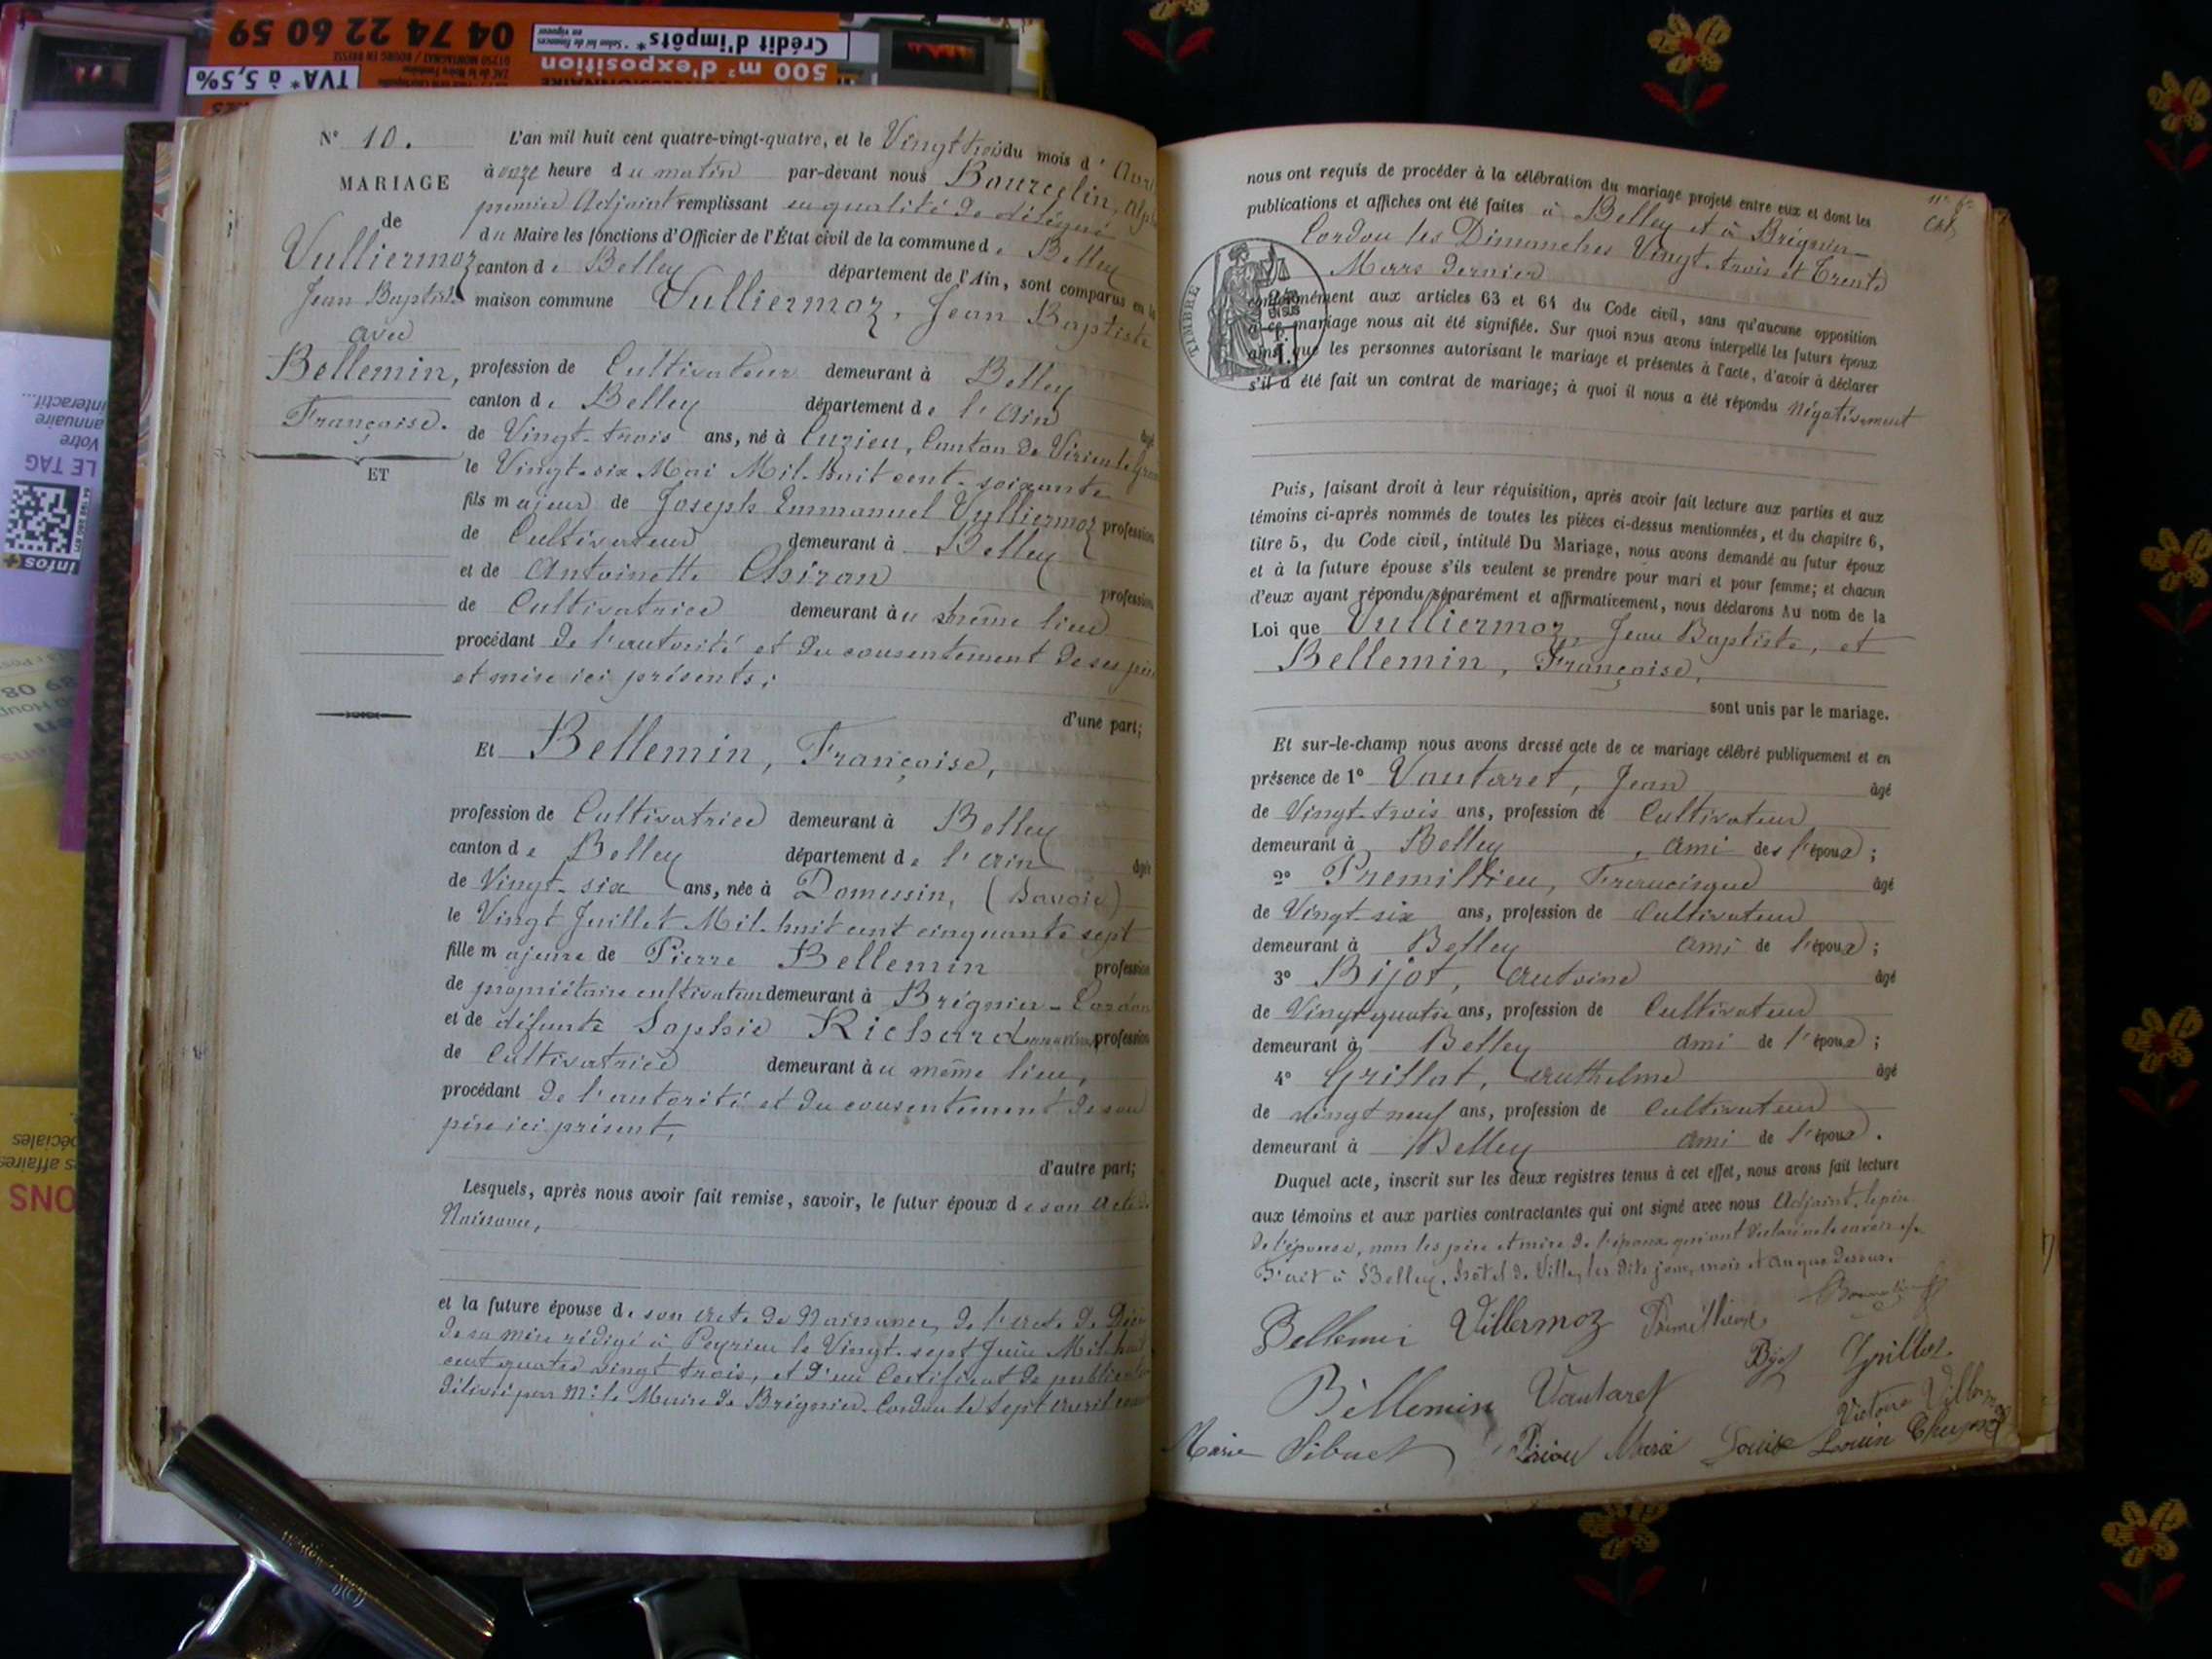 04 74 22 60 59
Crédit d'impôts*
* Selon loi de finances en vigueur
ZAC de la Maire Fontaine
01250 MONTAGNAT / BOURG EN BRESSE
TVA* à 5,5%
500 m² d'exposition
interactif...
annuaire
Votre
LE TAG
infos+
N° 10.
MARIAGE
de
Vulliermoz
Jean Baptiste
avec
Bellemin,
Française.
ET
L'an mil huit cent quatre-vingt-quatre, et le Vingt trois du mois d'Avri
à onze heure du matin par-devant nous Bourcelin, Alp
premier Adjoint remplissant en qualité de délégué
du Maire les fonctions d'Officier de l'État civil de la commune de Belley
canton de Belley département de l'Ain, sont comparus en la
maison commune Vulliermoz, Jean Baptiste
profession de Cultivateur demeurant à Belley
canton de Belley département de l'Ain âgé
de Vingt-trois ans, né à Cuzieu, Canton de Virieu le Gran
le Vingt-six Mai Mil-huit cent-soixante
fils majeur de Joseph Emmanuel Vulliermoz profession
de Cultivateur demeurant à Belley
et de Antoinette Chiron profession
de Cultivatrice demeurant au même lieu
procédant de l'autorité et du consentement de ses père
et mère ici présents;
d'une part;
Et Bellemin, Française,
profession de Cultivatrice demeurant à Belley
canton de Belley département de l'Ain âgée
de Vingt-six ans, née à Domessin, (Savoie)
le Vingt Juillet Mil-huit cent cinquante sept
fille majeure de Pierre Bellemin profession
de propriétaire cultivateur demeurant à Brégnier-Cordon
et de défunte Sophie Richard profession
de Cultivatrice demeurant au même lieu,
procédant de l'autorité et du consentement de son
père ici présent,
d'autre part;
Lesquels, après nous avoir fait remise, savoir, le futur époux de son acte de
Naissance,
et la future épouse de son acte de Naissance, de l'acte de Décè
de sa mère rédigé à Peyrieu le Vingt-sept Juin Mil-huit
cent quatre vingt trois, et d'un Certificat de publication
délivré par Mr le Maire de Brégnier-Cordon le sept avril
nous ont requis de procéder à la célébration du mariage projeté entre eux et dont les
publications et affiches ont été faites à Belley et à Brégnier-
Cordon les Dimanches Vingt-trois et Trente
Mars dernier
TIMBRE
conformément aux articles 63 et 64 du Code civil, sans qu'aucune opposition
à ce mariage nous ait été signifiée. Sur quoi nous avons interpellé les futurs époux
ainsi que les personnes autorisant le mariage et présentes à l'acte, d'avoir à déclarer
s'il a été fait un contrat de mariage; à quoi il nous a été répondu Négativement
Puis, faisant droit à leur réquisition, après avoir fait lecture aux parties et aux
témoins ci-après nommés de toutes les pièces ci-dessus mentionnées, et du chapitre 6,
titre 5, du Code civil, intitulé Du Mariage, nous avons demandé au futur époux
et à la future épouse s'ils veulent se prendre pour mari et pour femme; et chacun
d'eux ayant répondu séparément et affirmativement, nous déclarons Au nom de la
Loi que Vulliermoz, Jean Baptiste, et
Bellemin, Française,
sont unis par le mariage.
Et sur-le-champ nous avons dressé acte de ce mariage célébré publiquement et en
présence de 1° Vautaret, Jean âgé
de Vingt-trois ans, profession de Cultivateur
demeurant à Belley, ami des l'époux;
2° Premillieu, Francisque âgé
de Vingt-six ans, profession de Cultivateur
demeurant à Belley ami de l'époux;
3° Bijot, Antoine âgé
de Vingt quatre ans, profession de Cultivateur
demeurant à Belley ami de l'époux;
4° Grillot, Anthelme âgé
de vingt neuf ans, profession de Cultivateur
demeurant à Belley ami de l'époux.
Duquel acte, inscrit sur les deux registres tenus à cet effet, nous avons fait lecture
aux témoins et aux parties contractantes qui ont signé avec nous Adjoint, le père
de l'épouse, non les père et mère de l'époux qui ont déclaré ne le savoir
Fait à Belley, hôtel de Ville, les dits jour, mois et an que dessus.
Bellemin Villermoz Premillieux
Bijot Grillot
Bellemin Vautaret
Victoire Villermoz
Marie Sibuet Piriou Marie Louise Louise